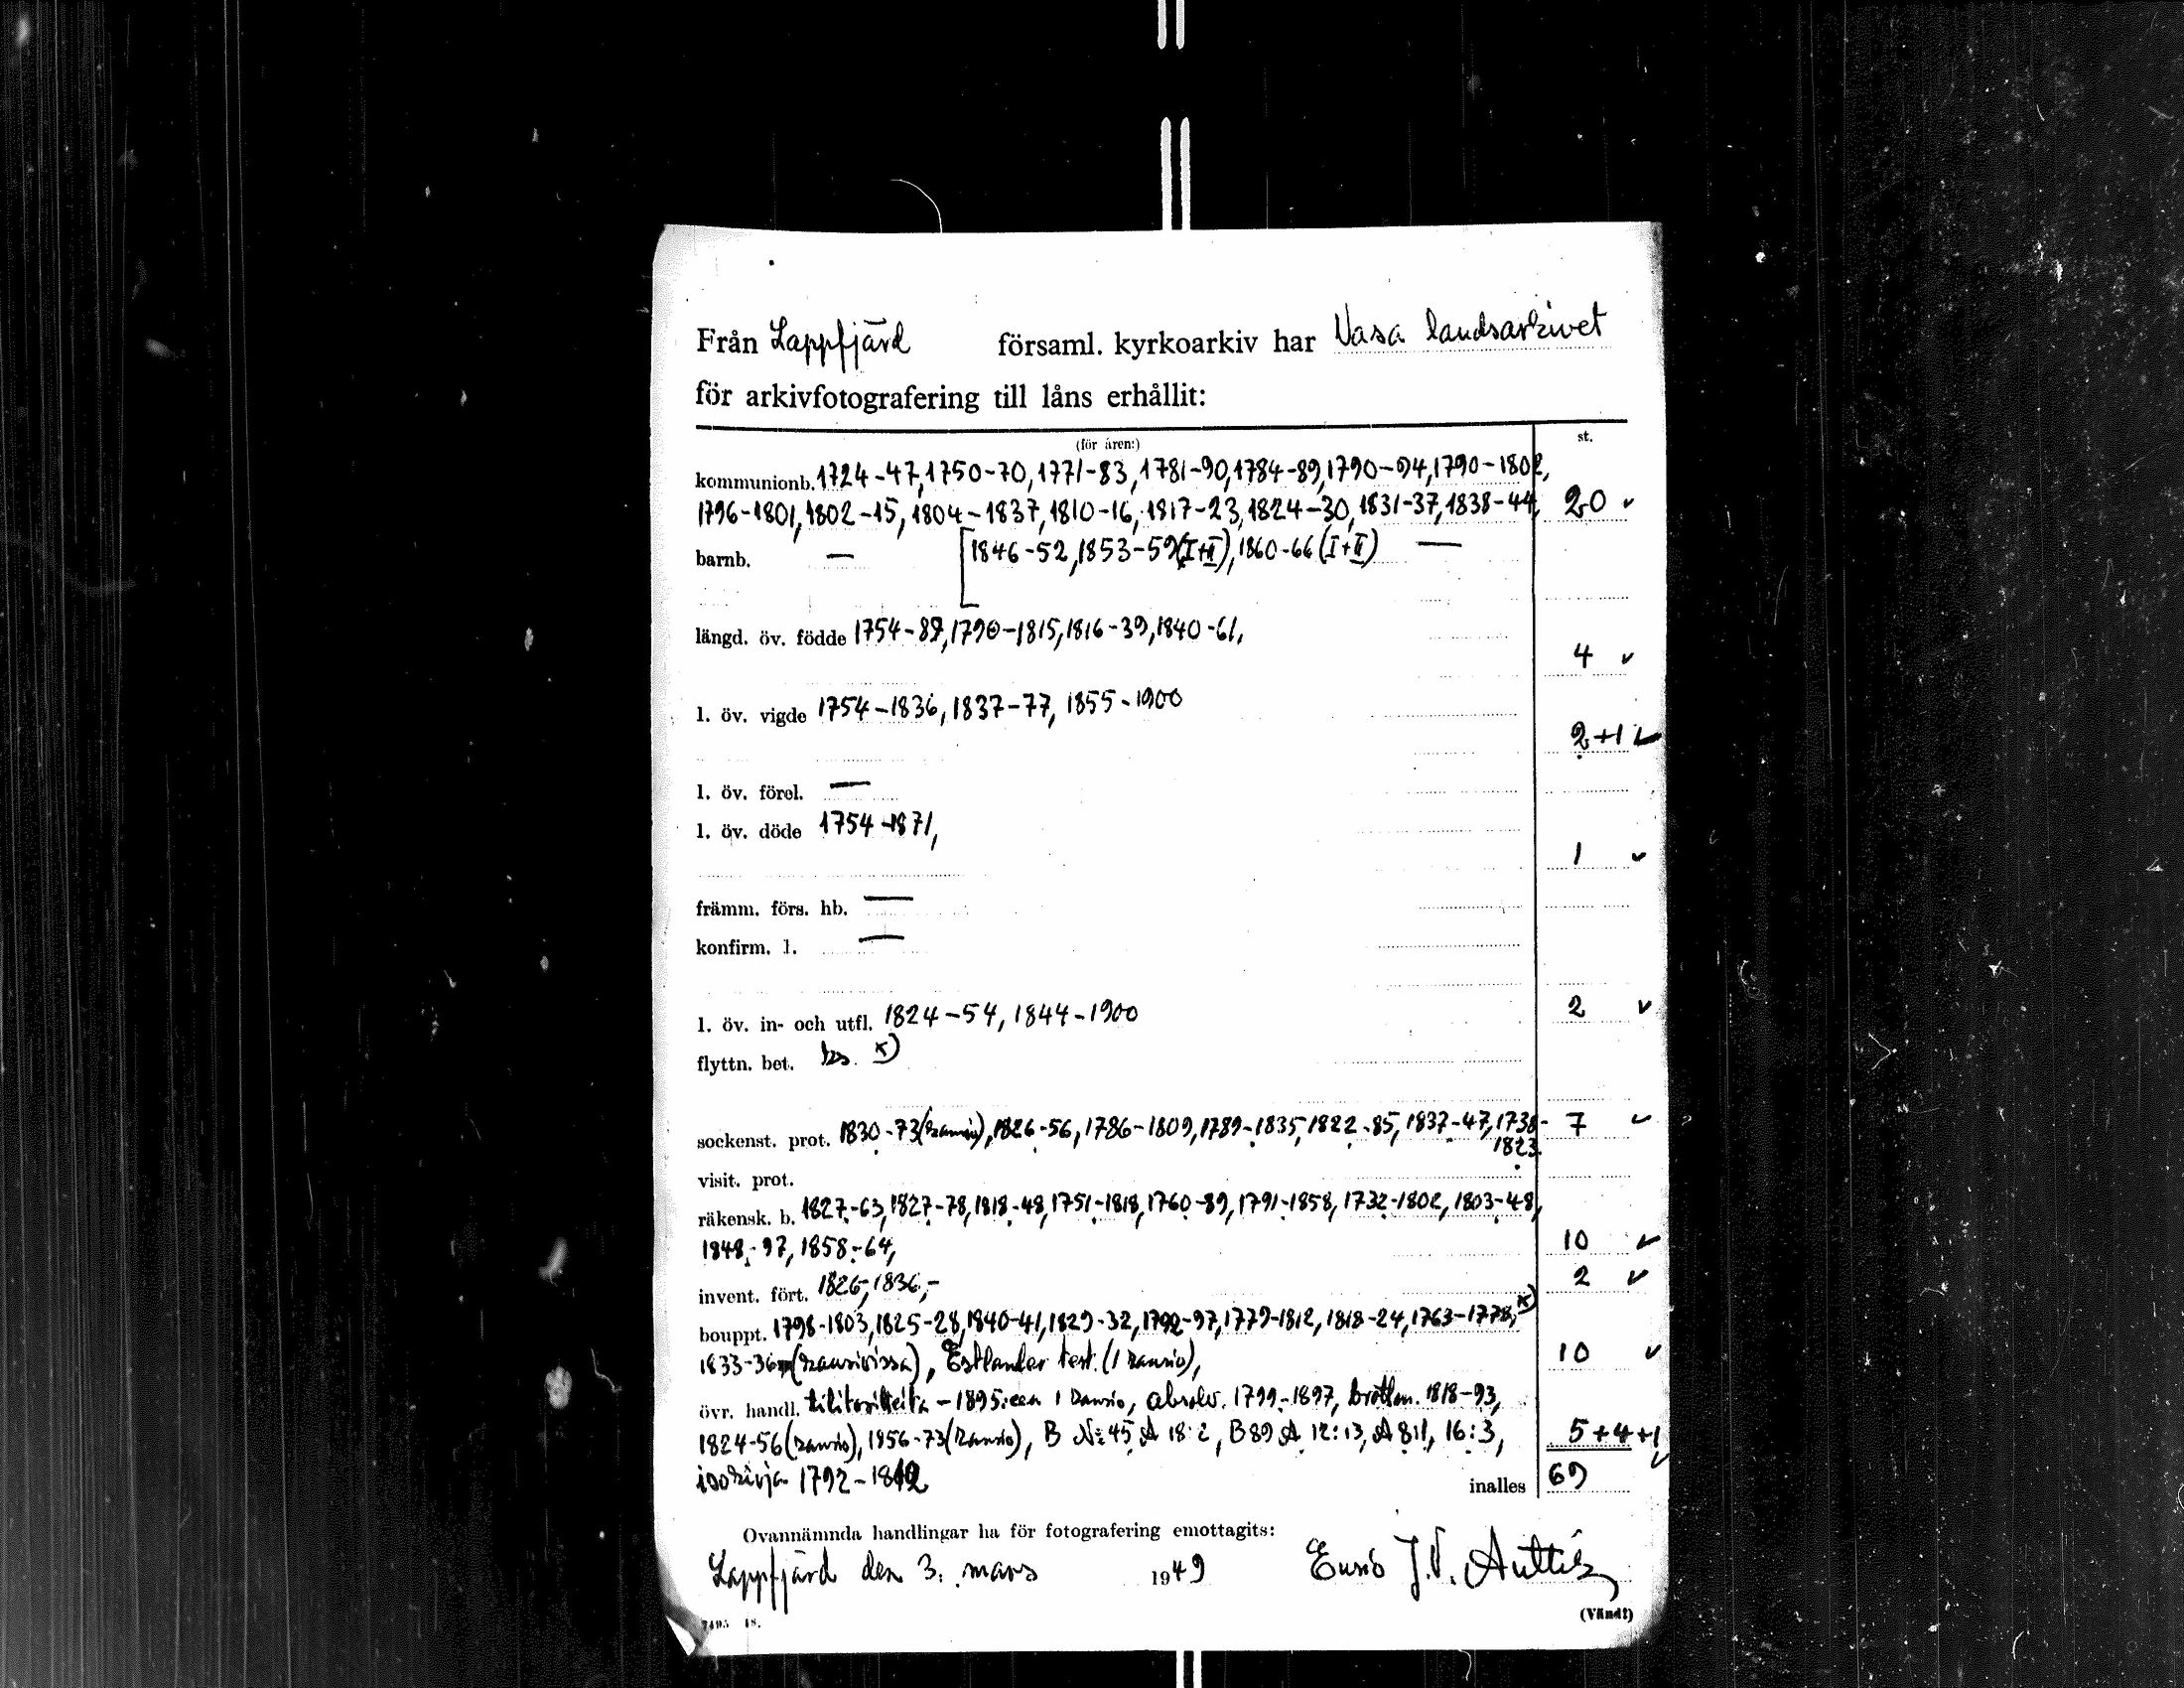 Från Lappfjärd församl. kyrkoarkiv har Vasa landsarkivet
för arkivfotografering till låns erhållit:
(för åren:) st.
kommunionb. 1724-47, 1750-70, 1771-83, 1781-90, 1784-89, 1790-94, 1790-1802,
1796-1801, 1802-15, 1804-1837, 1810-16, 1817-23, 1824-30, 1831-37, 1838-44, 20 ✓
barnb. — [1846-52, 1853-59 (I+II), 1860-66 (I+II) —
längd. öv. födde 1754-89, 1790-1815, 1816-39, 1840-61,
4 ✓
l. öv. vigde 1754-1836, 1837-77, 1855-1900
2+1 ✓
l. öv. förel. —
l. öv. döde 1754-1871,
1 ✓
främm. förs. hb. —
konfirm. l. —
l. öv. in- och utfl. 1824-54, 1844-1900 2 ✓
flyttn. bet. x)
sockenst. prot. 1830-73 (kansio), 1826-56, 1786-1809, 1789-1835, 1822-85, 1837-47, 1738- 7 ✓
1823.
visit. prot.
räkensk. b. 1827-63, 1827-78, 1818-48, 1751-1818, 1760-89, 1791-1858, 1732-1802, 1803-48,
1848-97, 1858-64, 10 ✓
invent. fört. 1826, 1836,- 2 ✓
bouppt. 1798-1803, 1825-28, 1840-41, 1829-32, 1792-97, 1779-1812, 1818-24, 1763-1778, x)
1833-36 (kansioissa), Estlander test. (1 kansio), 10 ✓
övr. handl. tilitositteita -1895:een 1 kansio, absolv. 1799-1897, brottm. 1818-93,
1824-56 (kansio), 1856-73 (kansio), B N:45, A 18:2, B 89 A 12:13, A 8:1, 16:3, 5+4+1 ✓
isokirja 1792-1812 inalles 69
Ovannämnda handlingar ha för fotografering emottagits:
Lappfjärd den 3. mars 1949 J.V. Anttila
(Vänd!)
7495 48.